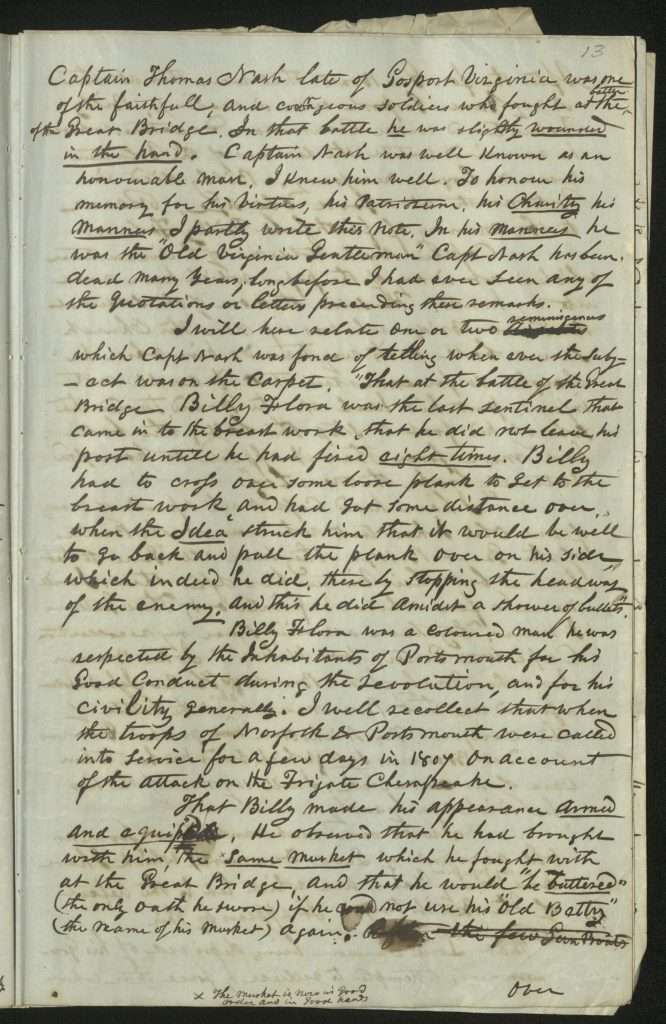 13
Captain Thomas Nash late of Gosport Virginia was one
of the faithfull, and couragious soldiers who fought at the battle
of the Great Bridge. In that battle he was slightly wounded
in the hand. Captain Nash was well known as an
honourable man. I knew him well. To honour his
memory for his Virtues, his Patriotism, his Charity his
Manners I partly write this Note. In his manners he
was the "Old Virginia Gentleman" Capt Nash has been
dead many years, long before I had ever seen any of
the Quotations or letters preceeding these remarks.
I will here relate one or two reminisences
which Capt Nash was fond of telling when ever the Subj-
-act was on the Carpet. "That at the battle of the Great
Bridge Billy Flora was the last sentinel that
came in to the breast work, that he did not leave his
post untill he had fired eight times. Billy
had to cross over some loose plank to get to the
breast work, and had got some distance over,
when the Idea struck him that it would be well
to go back and pull the plank over on his side
which indeed he did, there by stopping the headway
of the enemy, and this he did amidst a shower of bullets".
Billy Flora was a coloured man he was
respected by the Inhabitants of Portsmouth for his
Good Conduct during the revolution, and for his
civility generally. I well recollect that when
the troops of Norfolk & Portsmouth were called
into Service for a few days in 1807 On account
of the attack on the Frigate Chesapeake.
That Billy made his appearance armed
and equiped, He observed that he had brought
with him, the same musket which he fought with
at the Great Bridge, and that he would "be buttered"
(the only oath he swore) if he could not use his "Old Betty"
(the name of his musket) again. the few Gun Boats
Over
x The musket is now in good
order and in good hands